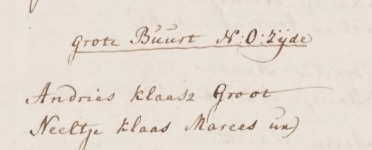 Grote Buurt N:O: Zijde
Andries klaasz Groot
Neeltje klaas Marees ux)